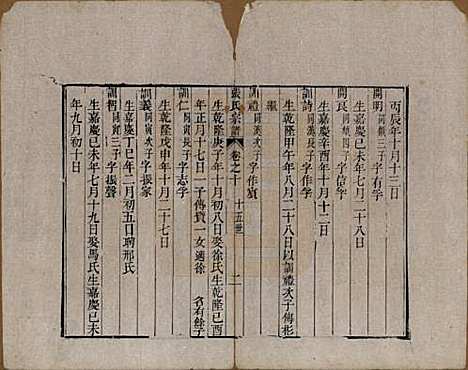 丙辰年十月十三日
開明同績三子字有孚
生嘉慶己未年二月二十八日
開良同績四子字信孚
生嘉慶辛酉年十月十二日
訓詩同漢長子字作孚
生乾隆甲午年八月二十八日以訓禮次子傳彬
繼
訓禮同漢次子字作賓
張氏宗譜 卷之十 十五世 二
生乾隆庚子年十一月初八日娶徐氏生乾隆己酉
年正月十七日一子傳賢一女適徐 名有餘子
訓仁同寅長子字志孚
生乾隆戊申年十二月二十七日
訓義同寅次子字振家
生嘉慶丁巳年二月初五日聘邢氏
訓智同寅三子字振聲
生嘉慶己未年七月十九日娶馬氏生嘉慶己未
年九月初十日